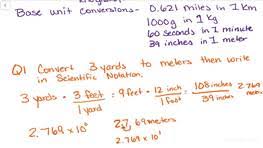 Base unit conversions - 0.621 miles in 1 km
1000g in 1 kg
60 seconds in 1 minute
39 inches in 1 meter
Q1 Convert 3 yards to meters then write
in Scientific Notation.
3 yards · 3 feet / 1 yard = 9 feet · 12 inch / 1 foot = 108 inches / 39 inches 2.769
2.769 x 10⁰ 27.69 meters
2.769 x 10¹